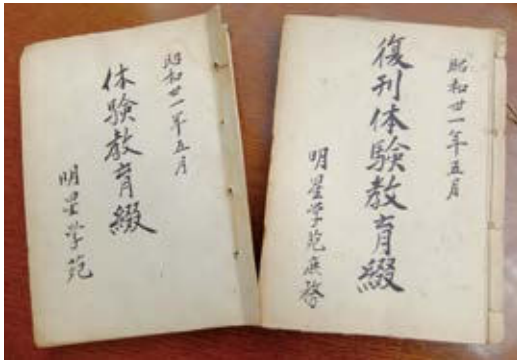 昭和廿一年五月
体験教育綴
明星学苑
昭和廿一年五月
復刊体験教育綴
明星学苑庶務